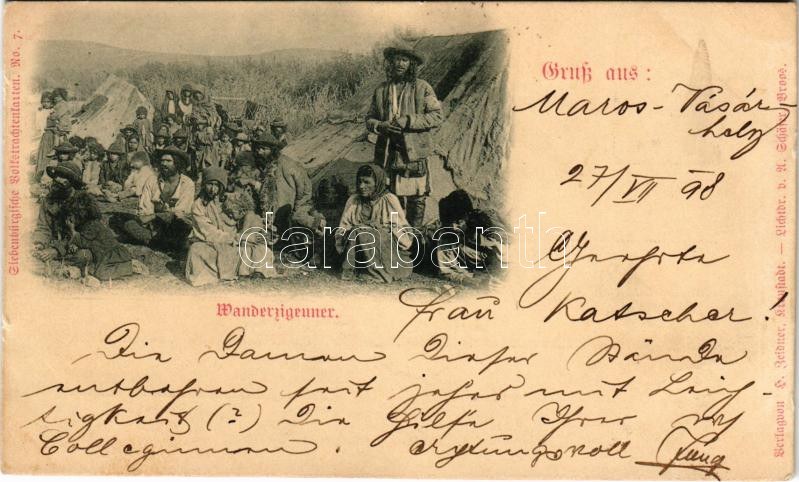 Siebenbürgische Volkstrachtenkarten. No. 7.
Gruß aus:
Maros-Vásár-
hely
27/VII 98
Geehrte
Frau Katscher!
Wanderzigeuner.
Die Damen dieser Stände
entbehren seit jeher mit Leich-
tigkeit (?) die Hilfe Ihrer
Colleginnen. achtungsvoll Jung
Verlag von H. Zeidner, Kronstadt. — Lichtdr. v. A. Schäser, Broos.
darabanth